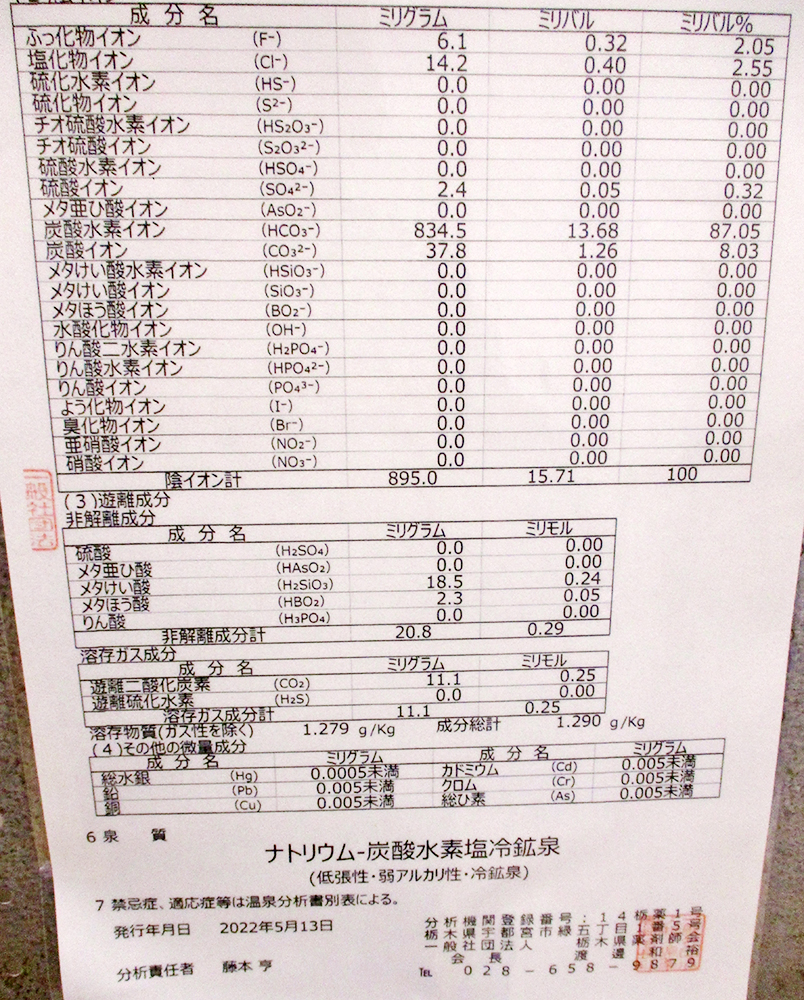 成 分 名 ミリグラム ミリバル ミリバル%
ふっ化物イオン (F⁻) 6.1 0.32 2.05
塩化物イオン (Cl⁻) 14.2 0.40 2.55
硫化水素イオン (HS⁻) 0.0 0.00 0.00
硫化物イオン (S²⁻) 0.0 0.00 0.00
チオ硫酸水素イオン (HS₂O₃⁻) 0.0 0.00 0.00
チオ硫酸イオン (S₂O₃²⁻) 0.0 0.00 0.00
硫酸水素イオン (HSO₄⁻) 0.0 0.00 0.00
硫酸イオン (SO₄²⁻) 2.4 0.05 0.32
メタ亜ひ酸イオン (AsO₂⁻) 0.0 0.00 0.00
炭酸水素イオン (HCO₃⁻) 834.5 13.68 87.05
炭酸イオン (CO₃²⁻) 37.8 1.26 8.03
メタけい酸水素イオン (HSiO₃⁻) 0.0 0.00 0.00
メタけい酸イオン (SiO₃⁻) 0.0 0.00 0.00
メタほう酸イオン (BO₂⁻) 0.0 0.00 0.00
水酸化物イオン (OH⁻) 0.0 0.00 0.00
りん酸二水素イオン (H₂PO₄⁻) 0.0 0.00 0.00
りん酸水素イオン (HPO₄²⁻) 0.0 0.00 0.00
りん酸イオン (PO₄³⁻) 0.0 0.00 0.00
よう化物イオン (I⁻) 0.0 0.00 0.00
臭化物イオン (Br⁻) 0.0 0.00 0.00
亜硝酸イオン (NO₂⁻) 0.0 0.00 0.00
硝酸イオン (NO₃⁻) 0.0 0.00 0.00
陰イオン計 895.0 15.71 100
(3)遊離成分
非解離成分
成 分 名 ミリグラム ミリモル
硫酸 (H₂SO₄) 0.0 0.00
メタ亜ひ酸 (HAsO₂) 0.0 0.00
メタけい酸 (H₂SiO₃) 18.5 0.24
メタほう酸 (HBO₂) 2.3 0.05
りん酸 (H₃PO₄) 0.0 0.00
非解離成分計 20.8 0.29
溶存ガス成分
成 分 名 ミリグラム ミリモル
遊離二酸化炭素 (CO₂) 11.1 0.25
遊離硫化水素 (H₂S) 0.0 0.00
溶存ガス成分計 11.1 0.25
溶存物質(ガス性を除く) 1.279 g/Kg 成分総計 1.290 g/Kg
(4)その他の微量成分
成 分 名 ミリグラム 成 分 名 ミリグラム
総水銀 (Hg) 0.0005未満 カドミウム (Cd) 0.005未満
鉛 (Pb) 0.005未満 クロム (Cr) 0.005未満
銅 (Cu) 0.005未満 総ひ素 (As) 0.005未満
6 泉 質
ナトリウム-炭酸水素塩冷鉱泉
(低張性・弱アルカリ性・冷鉱泉)
7 禁忌症、適応症等は温泉分析書別表による。
発行年月日 2022年5月13日
分析責任者 藤本 亨
分析機関登録番号
TEL 028-658-9879
一般社団法